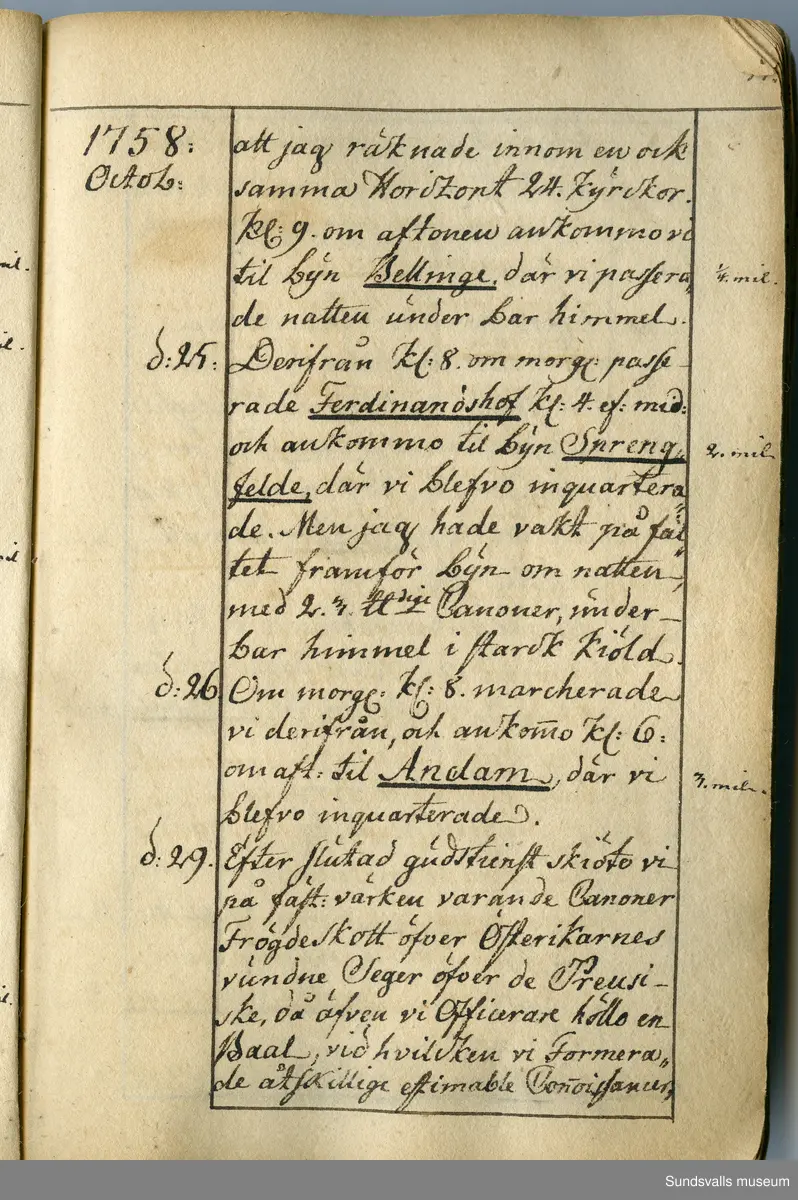 1758:
Octob:
att jag räknade innom en och
samma Horizont 24. kyrckor.
Kl: 9. om aftonen ankommo vi
til byn Bellinge, där vi passera„ 1/4. mil.
de natten under bar himmel.
d: 25. Derifrån kl: 8. om morg: passe-
rade Ferdinandshof kl: 4. ef: mid:
och ankommo til byn Spreng„ 2. mil
felde, där vi blefvo inquartera„
de. Men jag hade vakt på fäl„
tet framför byn om natten,
med 2. 3. ℔dige Canoner, under
bar himmel i starck kiöld.
d: 26. Om morg: kl: 8. marcherade
vi derifrån, och ankom̄o kl: 6:
om aft: til Anclam, där vi 3. mil.
blefvo inquarterade.
d: 29. Efter slutad gudstienst skiöto vi
på fäst: värken varande Canoner
Frögdeskott öfver Österikarnes
vundne Seger öfver de Preusi-
ske, då äfven vi Officerare höllo en
Baal, vid hvilcken vi Formera„
de åtskillige estimable Con̄oissancer,
Sundsvalls museum